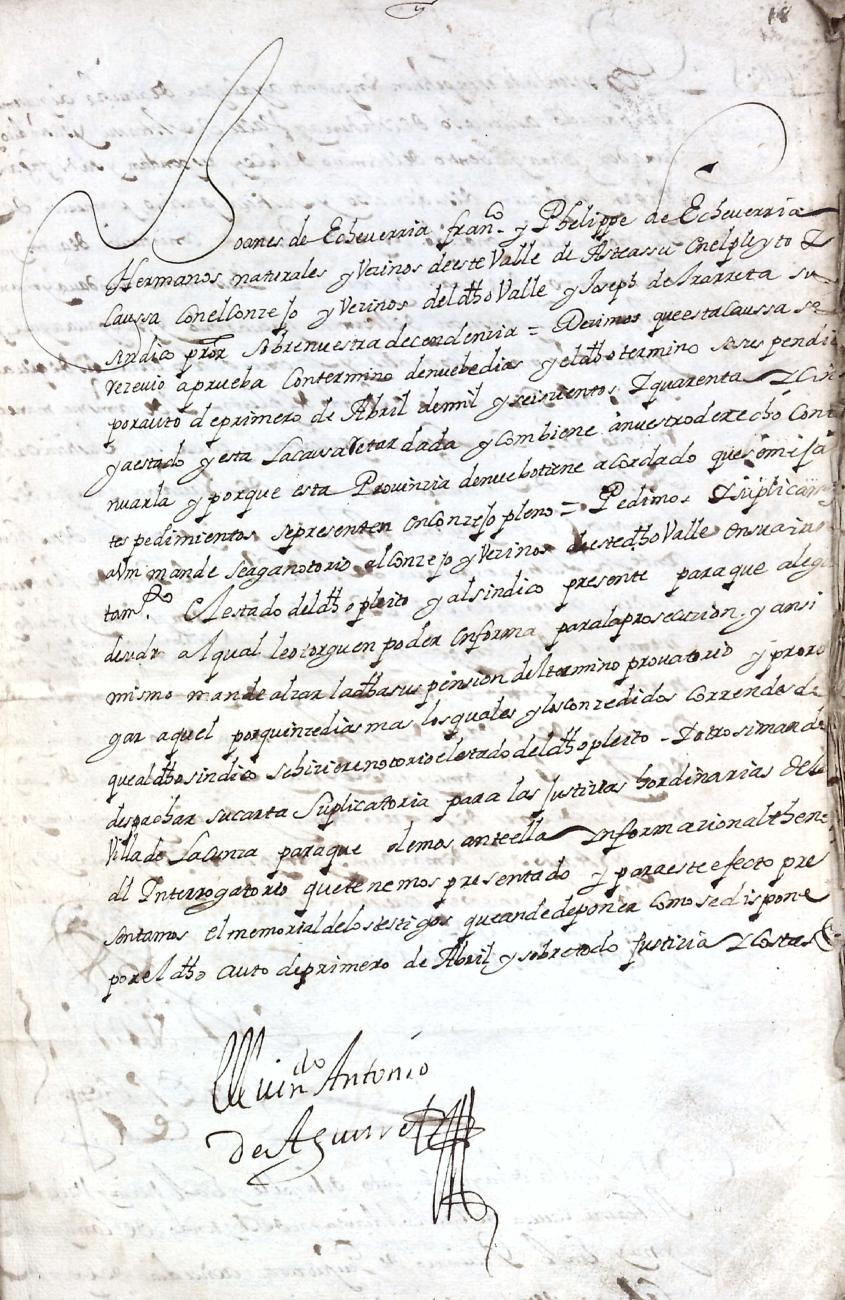 18
Joanes de Echeverria fran.co y Phelippe de Echeverria
Hermanos naturales y Vezinos deeste Valle de Asteassu Enelpleyto I
Caussa Conel Conzejo y Vezinos del dho Valle y Joseph de Irarreta su
Sindico pror Sobrenuestra decendenzia = Dezimos questa Caussa se
rezevio aprueba Contermino de nuebe dias y el dho termino se sus pendio
porauto de primero de Abril de mil y seiscientos I quarenta I Cin
yaestado y esta La causa Retardada y Combiene ànuestro derecho Conti
nuarla y porque esta Provinzia de nuebo tiene acordado que semeja
tes pedimientos se presenten en Conzejo pleno = Pedimos I suplicamos
aVm mande seaga notorio al Conzejo y Vezinos deeste dho Valle Ensu aiun
tam.to El estado del dho pleito y al sindico presente para que alegue
desudro al qual le otorguen poder Enforma para la prosecucion y ansi
mismo mande alzar la dha sus pension del termino provatorio y proro
gar aquel por quinze dias mas los quales y los conzedidos Corren desde
que al dho sindico se hiziere notorio el estado del dho pleito - I otrosi mande
despachar su carta Suplicatoria para las Justizias hordinarias de la
Villa de Lacunza para que demos ante ella Informazion al thenor
del Interrogatorio que tenemos presentado y para este efecto pre
sentamos el memorial de los testigos que an de deponer Como se dispone
por el dho auto de primero de Abril y sobre todo Justizia I Costas &
Antonio
de Aguirre